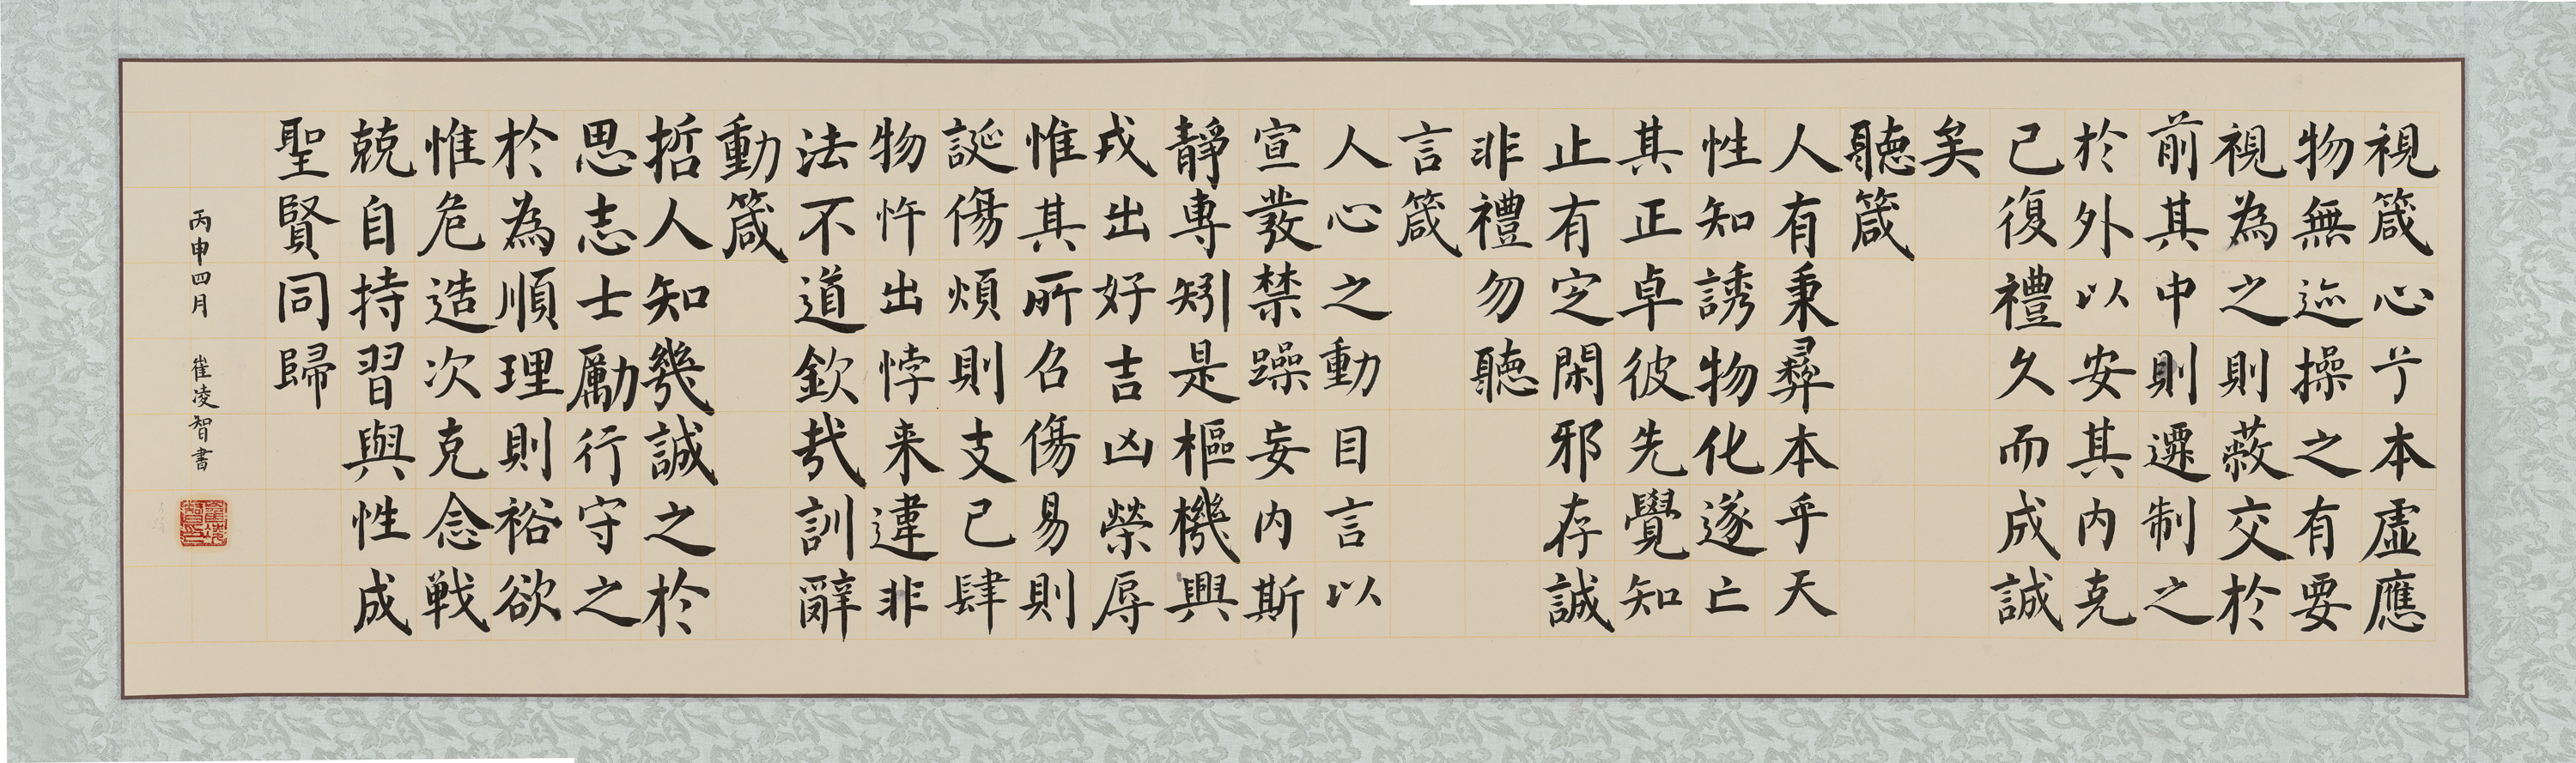 視箴心兮本虛應
物無迹操之有要
視為之則蔽交於
前其中則遷制之
於外以安其內克
己復禮久而成誠
矣
聽箴
人有秉彝本乎天
性知誘物化遂亡
其正卓彼先覺知
止有定閑邪存誠
非禮勿聽
言箴
人心之動目言以
宣發禁躁妄內斯
靜專矧是樞機興
戎出好吉凶榮辱
惟其所召傷易則
誕傷煩則支己肆
物忤出悖来違非
法不道欽哉訓辭
動箴
哲人知幾誠之於
思志士勵行守之
於為順理則裕欲
惟危造次克念戰
兢自持習與性成
聖賢同歸
丙申四月 崔凌智書